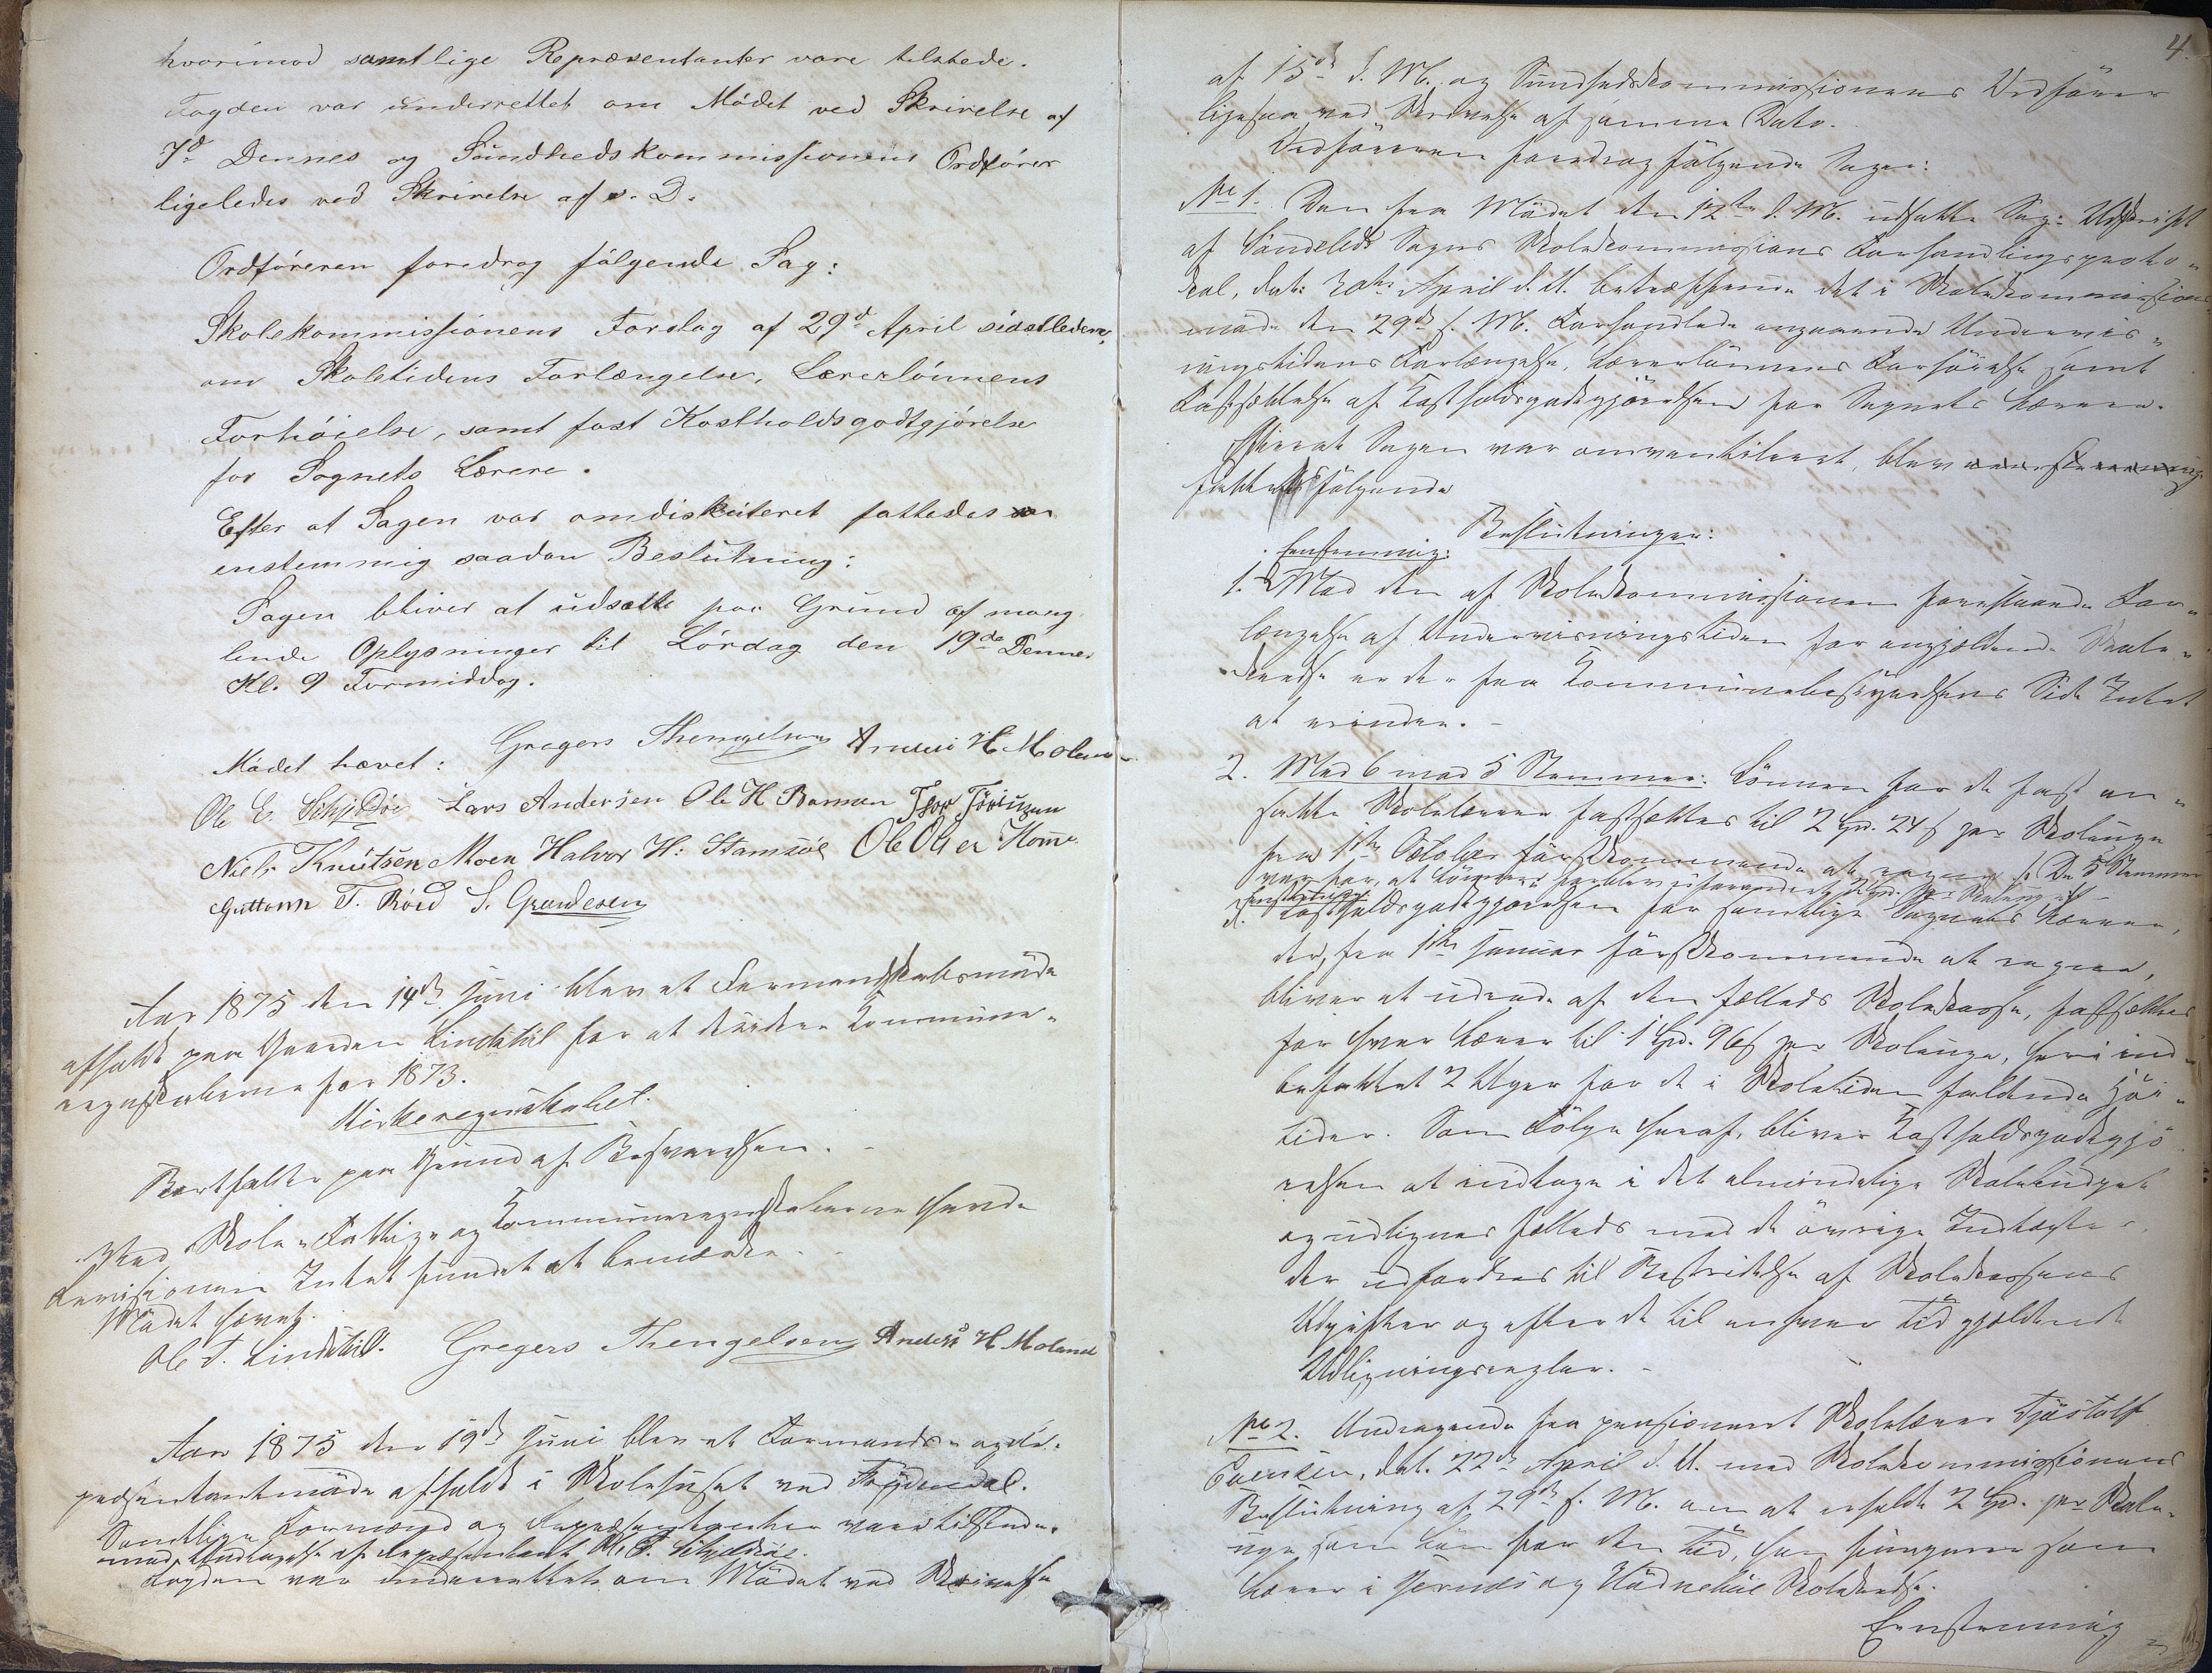 hvorimod samtlige Repræsentanter vare tilstede.
Fogden var underrettet om Mødet ved Skrivelse af
7d Dennes og Sundhedskommissionens Ordfører
ligeledes ved Skrivelse af s. D.
Ordføreren foredrog følgende Sag:
Skolekommissionens Forslag af 29d April sidstledene,
om Skoletidens Forlængelse, Lærerlønnens
Forhøielse, samt fast Kostholdsgodtgjørelse
for Sognets Lærere.
Efter at Sagen var omdiskuteret fattedes
enstemmig saadan Beslutning:
Sagen bliver at udsætte paa Grund af mang
lende Oplysninger til Lørdag den 19de Dennes
Kl. 9 Formiddag.
Mødet hævet: Gregers Thengelsen Anders H. Moland
Ole E. Schjeldsøe Lars Andersen Ole H. Thor
Niels Knutsen Moen Halvor H. Stamsøe Ole Olsen
Guttorm T. Røed S. Gundesen
Aar 1875 den 14de Juni blev et Formandskabsmøde
afholdt paa Gaarden Lindstøl for at decidere Kommune-
regnskaberne for 1873.
Kirkeregnskabet.
Bortfalder paa Grund af Besvarelsen. -
Ved Skole-, Fattig- og Kommuneregnskaberne havde
Revisionen Intet fundet at bemærke. -
Mødet hævet.
Ole T. Lindstøl. Gregers Thengelsen Anders H. Moland
Aar 1875 den 19de Juni blev et Formands- og Re-
præsentantmøde afholdt i Skolehuset ved Frydendal.
Samtlige Formænd og Repræsentanter vare tilstede.
med Undtagelse af Repræsentant Ole E. Schjeldsøe.
Fogden var underrettet om Mødet ved Skrivelse
4.
af 15de d. M. og Sundhedskommissionens Ordfører
ligesaa ved Skrivelse af samme Dato.
Ordføreren foredrog følgende Sager:
No 1. Den fra Mødet den 12te d. M. udsatte Sag: Udskrift
af Søndeleds Sogns Skolekommissions Forhandlingsproto-
kol, dat: 30te April d. A. betræffende det i Skolekommissions
møde den 29de s. M. Forhandlede angaaende Undervis-
ningstidens Forlængelse, Lærerlønnens Forhøielse samt
Fastsættelse af Kostholdsgodtgjørelsen for Sognets Lærere.
Efterat Sagen var omventileret, blev
fattet følgende
Beslutninger:
Eenstemmig:
1. Mod den af Skolekommissionen foreslaaede For-
længelse af Undervisningstiden for angjældende Skole-
kredse er der fra Kommunebestyrelsens Side Intet
at erindre. -
2. Med 6 mod 5 Stemmer: Lønnen for de fast an-
satte Skolelærere fastsættes til 2 Spd. 24 s per Skoleuge
fra 1ste Oktober førstkommende at regne. De 5 Stemmer
var for, at Lønnen forblev uforandret, 2 Spd. per Skoleuge.
Eenstemmig:
3. Kostholdsgodtgjørelsen for samtlige Sognets Lærere,
der, fra 1ste Januar førstkommende at regne,
bliver at udrede af den fælleds Skolekasse, fastsættes
for hver Lærer til 1 Spd. 96 s per Skoleuge, heri ind-
befattet 2 Uger for de i Skoletiden faldende Høi-
tider. Som Følge heraf, bliver Kostholdsgodtgjø-
relsen at indtage i det almindelige Skolebudget
og udlignes fælleds med de øvrige Indtægter,
der udfordres til Bestridelse af Skolekassens
Udgifter og efter de til enhver Tid gjældende
Udligningsregler. -
No 2. Andragende fra pensioneret Skolelærer Tjøstolf
Evensen, dat. 22de April d. A. med Skolekommissionens
Beslutning af 29de s. M. om at erholde 2 Spd. per Skole-
uge som Løn for den Tid, han fungerer som
Lærer i og Skolekreds.
Eenstemmig